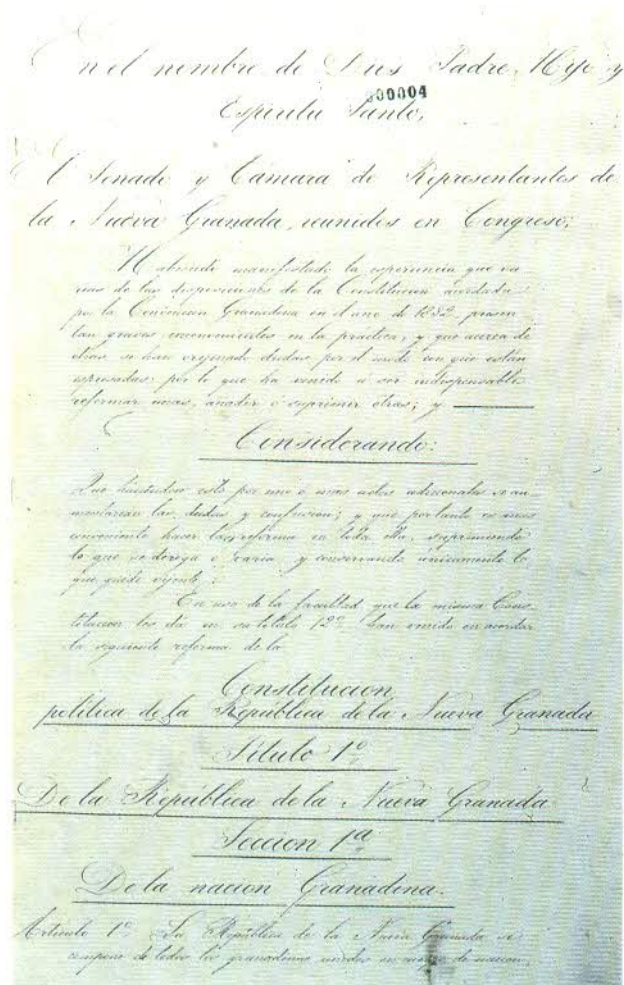 En el nombre de Dios Padre, Hijo y
000004
Espiritu Santo,
El Senado y Cámara de Representantes de
la Nueva Granada, reunidos en Congreso;
Habiendo manifestado la esperiencia que va
rias de las disposiciones de la Constitucion acordada
por la Convencion Granadina en el año de 1832, presen
tan graves inconvenientes en la práctica, y que acerca de
otras se han orijinado dudas por el modo con que están
espresadas: por lo que ha venido a ser indispensable
reformar unas, añadir ó suprimir otras; y
Considerando:
Que haciendose esto por uno o mas actos adicionales se au-
mentarian las dudas y confusion; y que por tanto es mas
conveniente hacer la reforma en toda ella, suprimiendo
lo que se deroga o varia, y conservando únicamente lo
que quede vijente;
En uso de la facultad que la misma Cons-
titucion les dá en su título 12º han venido en acordar
la siguiente reforma de la
Constitucion
politica de la República de la Nueva Granada
Título 1º
De la República de la Nueva Granada
Seccion 1ª
De la nacion Granadina.
Artículo 1º La República de la Nueva Granada se
compone de todos los granadinos unidos en cuerpo de nacion,